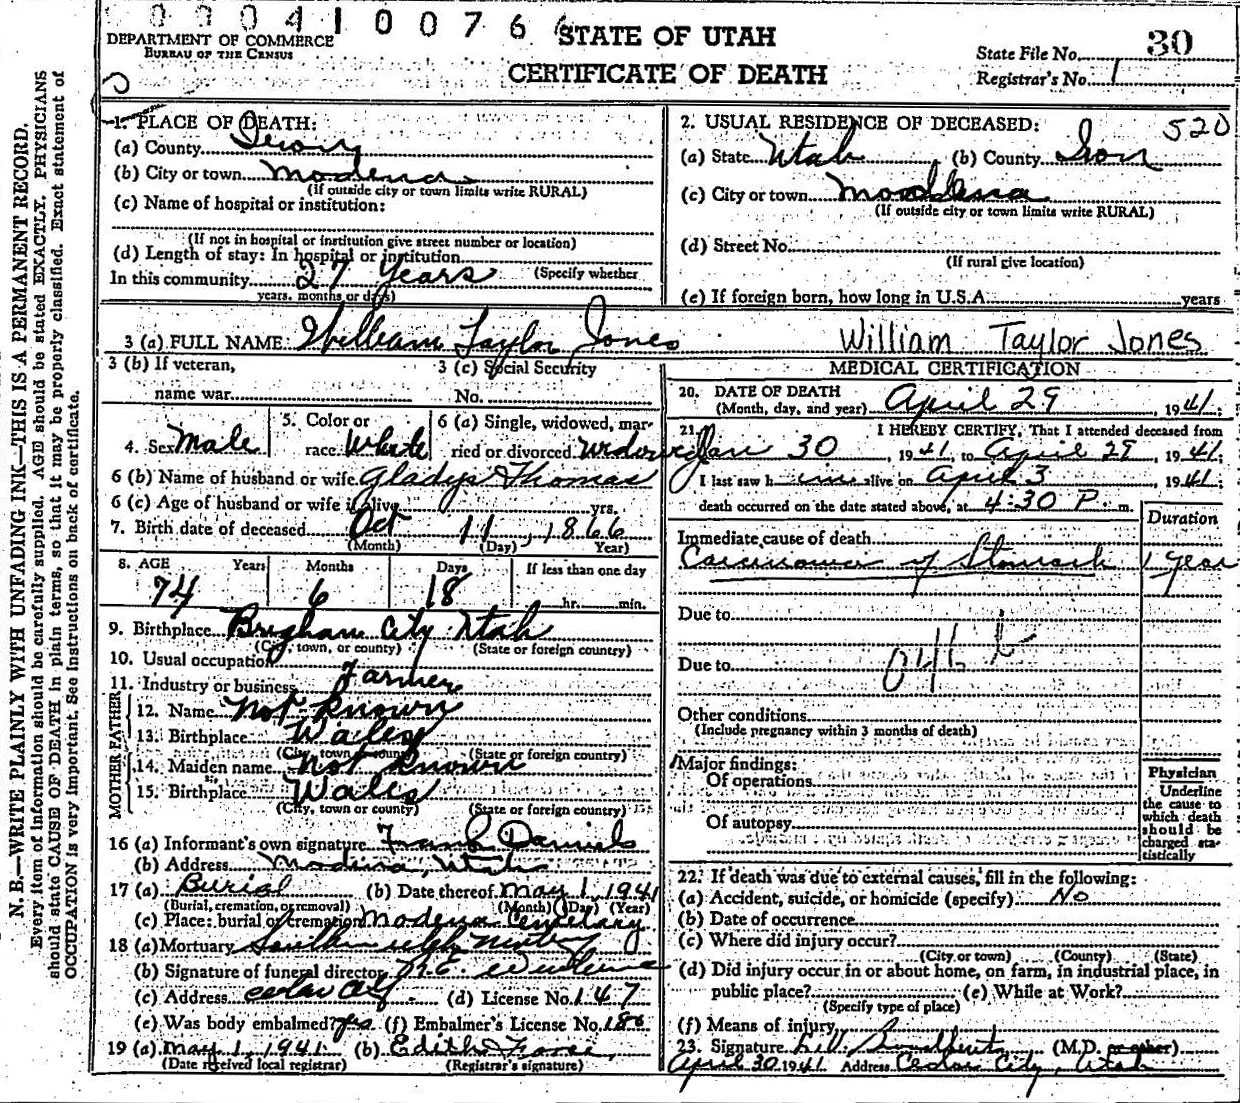 0 0 0 4 1 0 0 7 6
DEPARTMENT OF COMMERCE
BUREAU OF THE CENSUS
STATE OF UTAH
CERTIFICATE OF DEATH
State File No. 30
Registrar's No. 1
N. B.—WRITE PLAINLY WITH UNFADING INK—THIS IS A PERMANENT RECORD.
Every item of information should be carefully supplied. AGE should be stated EXACTLY. PHYSICIANS
should state CAUSE OF DEATH in plain terms, so that it may be properly classified. Exact statement of
OCCUPATION is very important. See instructions on back of certificate.
1. PLACE OF DEATH:
(a) County Iron
(b) City or town Modena
(If outside city or town limits write RURAL)
(c) Name of hospital or institution:
(If not in hospital or institution give street number or location)
(d) Length of stay: In hospital or institution
In this community 27 years (Specify whether
years, months or days)
2. USUAL RESIDENCE OF DECEASED: 520
(a) State Utah (b) County Iron
(c) City or town Modena
(If outside city or town limits write RURAL)
(d) Street No.
(If rural give location)
(e) If foreign born, how long in U.S.A. years
3 (a) FULL NAME: William Taylor Jones William Taylor Jones
3 (b) If veteran, 3 (c) Social Security
name war No.
4. Sex Male 5. Color or race White 6 (a) Single, widowed, married or divorced widower
6 (b) Name of husband or wife Gladys Thomas
6 (c) Age of husband or wife if alive yrs.
7. Birth date of deceased Oct 11, 1866
(Month) (Day) Year)
8. AGE Years Months Days If less than one day
74 6 18 hr. min.
9. Birthplace Brigham City Utah
(City, town, or county) (State or foreign country)
10. Usual occupation
11. Industry or business Farmer
FATHER
12. Name Not Known
13. Birthplace Wales
(City, town or county) (State or foreign country)
MOTHER
14. Maiden name Not Known
15. Birthplace Wales
(City, town or county) (State or foreign country)
16 (a) Informant's own signature Frank Daniels
(b) Address Modena, Utah
17 (a) Burial (b) Date thereof May 1, 1941
(Burial, cremation, or removal) (Month) (Day) (Year)
(c) Place: burial or cremation Modena Cemetery
18 (a) Mortuary Southern Utah
(b) Signature of funeral director
(c) Address Cedar City (d) License No. 147
(e) Was body embalmed? yes (f) Embalmer's License No. 186
19 (a) May 1, 1941 (b) Edith
(Date received local registrar) (Registrar's signature)
MEDICAL CERTIFICATION
20. DATE OF DEATH
(Month, day, and year) April 29, 1941;
21. I HEREBY CERTIFY, That I attended deceased from
Jan 30, 1941, to April 29, 1941;
I last saw him alive on April 3, 1941;
death occurred on the date stated above, at 4:30 P. m.
Duration
Immediate cause of death
Carcinoma of Stomach 1 year
Due to
Due to
Other conditions
(Include pregnancy within 3 months of death)
Major findings:
Of operations
Of autopsy
Physician
Underline
the cause to
which death
should be
charged sta-
tistically
22. If death was due to external causes, fill in the following:
(a) Accident, suicide, or homicide (specify) No
(b) Date of occurrence
(c) Where did injury occur?
(City or town) (County) (State)
(d) Did injury occur in or about home, on farm, in industrial place, in
public place? (e) While at Work?
(Specify type of place)
(f) Means of injury
23. Signature (M.D. or other)
April 30 1941 Address Cedar City, Utah